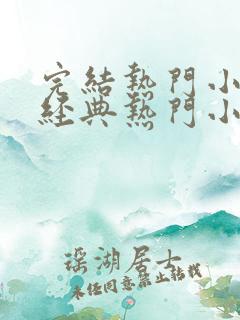 完結熱門小
經典熱門小
瑶湖居士
未經同意禁止轉載